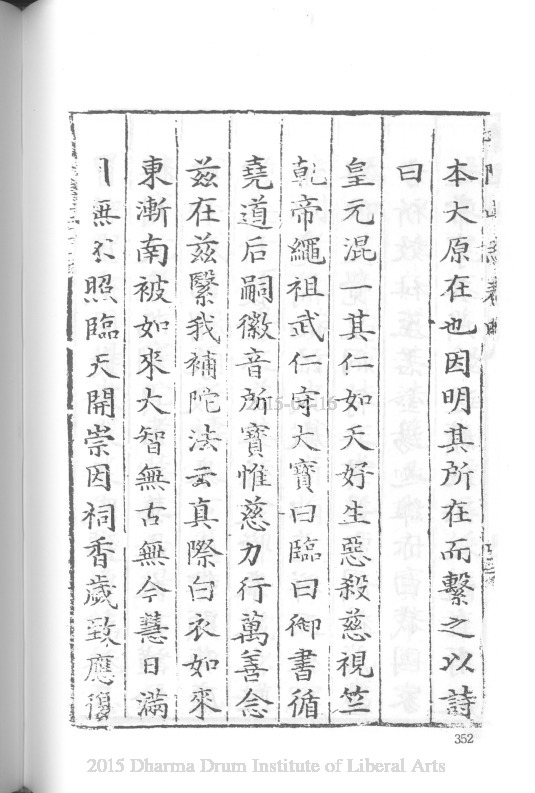 本大原在也因明其所在而繫之以詩
曰
皇元混一其仁如天好生惡殺慈視竺
乾帝繩祖武仁守大寶曰臨曰御書循
堯道后嗣徽音所寶惟慈力行萬善念
兹在兹繄我補陀法云真際白衣如來
東漸南被如來大智無古無今慧日滿
無不照臨天開崇因祠香歲致應復
352
2015-04-16
2015 Dharma Drum Institute of Liberal Arts